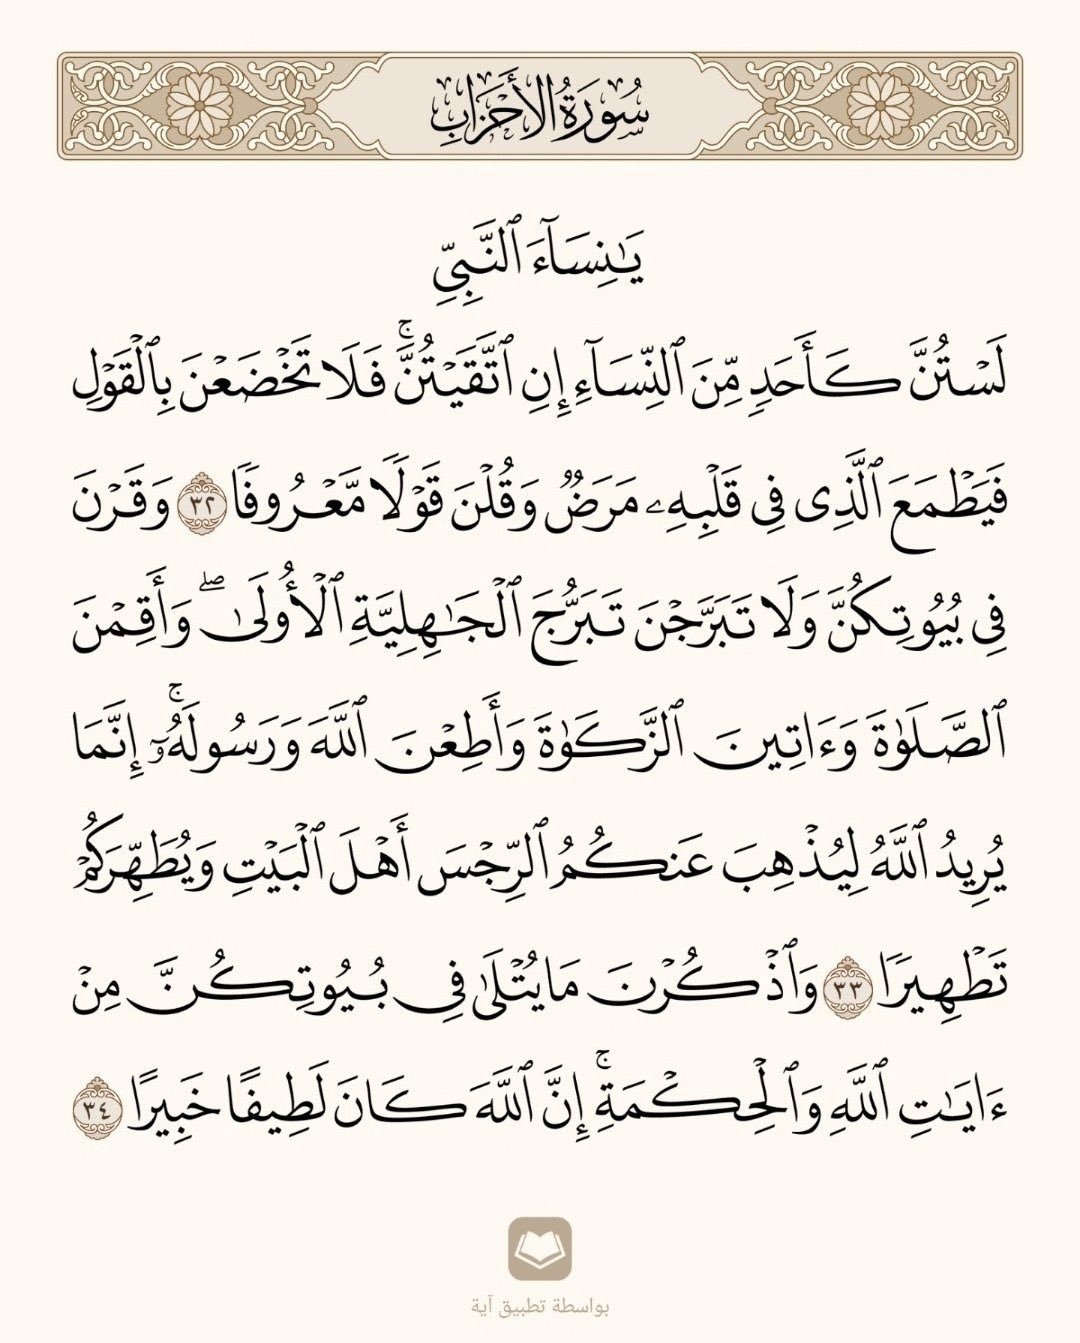 سُورَةُ الأَحْزَابِ
يَٰنِسَآءَ ٱلنَّبِيِّ
لَسْتُنَّ كَأَحَدٍ مِّنَ ٱلنِّسَآءِ إِنِ ٱتَّقَيْتُنَّۚ فَلَا تَخْضَعْنَ بِٱلْقَوْلِ
فَيَطْمَعَ ٱلَّذِى فِى قَلْبِهِۦ مَرَضٌ وَقُلْنَ قَوْلًا مَّعْرُوفًا ٣٢ وَقَرْنَ
فِى بُيُوتِكُنَّ وَلَا تَبَرَّجْنَ تَبَرُّجَ ٱلْجَٰهِلِيَّةِ ٱلْأُولَىٰۖ وَأَقِمْنَ
ٱلصَّلَوٰةَ وَءَاتِينَ ٱلزَّكَوٰةَ وَأَطِعْنَ ٱللَّهَ وَرَسُولَهُۥٓۚ إِنَّمَا
يُرِيدُ ٱللَّهُ لِيُذْهِبَ عَنكُمُ ٱلرِّجْسَ أَهْلَ ٱلْبَيْتِ وَيُطَهِّرَكُمْ
تَطْهِيرًا ٣٣ وَٱذْكُرْنَ مَا يُتْلَىٰ فِى بُيُوتِكُنَّ مِنْ
ءَايَٰتِ ٱللَّهِ وَٱلْحِكْمَةِۚ إِنَّ ٱللَّهَ كَانَ لَطِيفًا خَبِيرًا ٣٤
بواسطة تطبيق آية